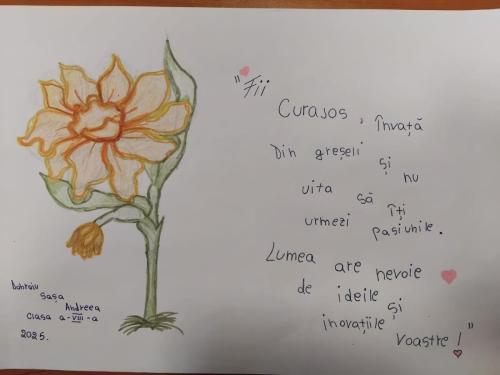 "Fii
Curajos, învață
Din greșeli și nu
uita să îți
urmezi pasiunile.
Lumea are nevoie
de ideile și
inovațiile
voastre!"
Sașa
Andreea
Clasa a-VIII-a
2025.